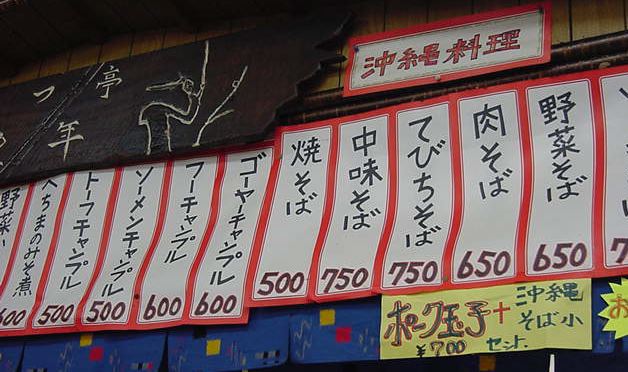 沖縄料理
亭
つ
年
野菜そば
650
肉そば
650
てびちそば
750
中味そば
750
焼そば
500
ゴーヤーチャンプル
600
フーチャンプル
600
ソーメンチャンプル
500
トーフチャンプル
500
へちまのみそ煮
500
野菜い
600
ポーク玉子+沖縄そば小
¥700 セット